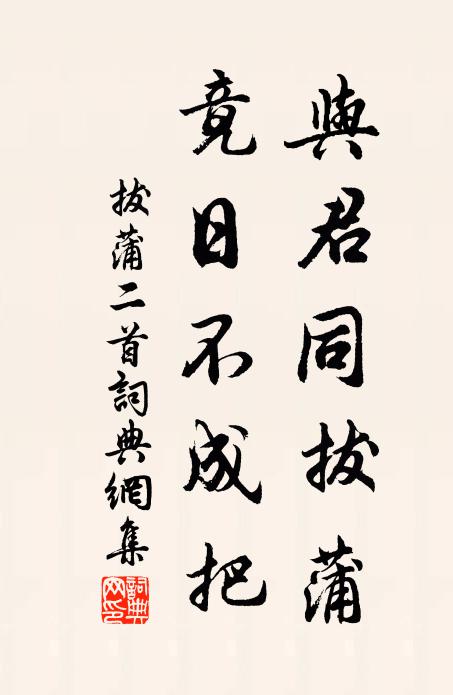 與君同拔蒲
竟日不成把
拔蒲二首詞典網集
詞典网印